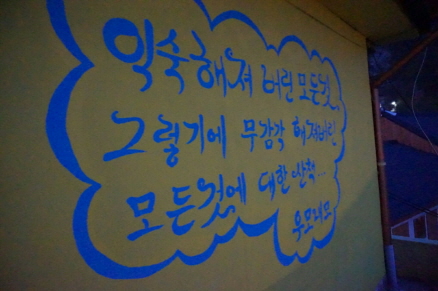 익숙해져 버린 모든것,
그렇기에 무감각 해져버린
모든것에 대한 산책...
우모내모